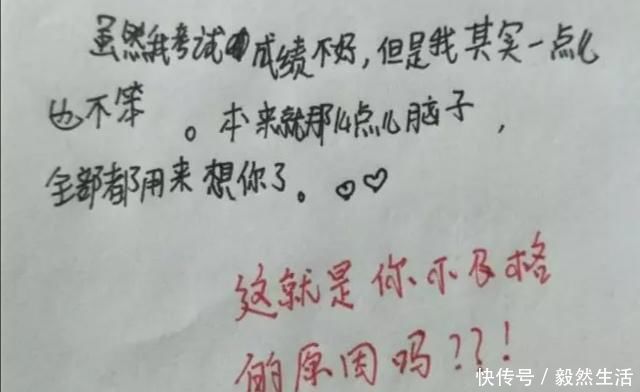 虽然我考试成绩不好，但是我其实一点儿
也不笨。本来就那么点儿脑子，
全部都用来想你了。
这就是你不及格
的原因吗？？！
快传号／毅然生活